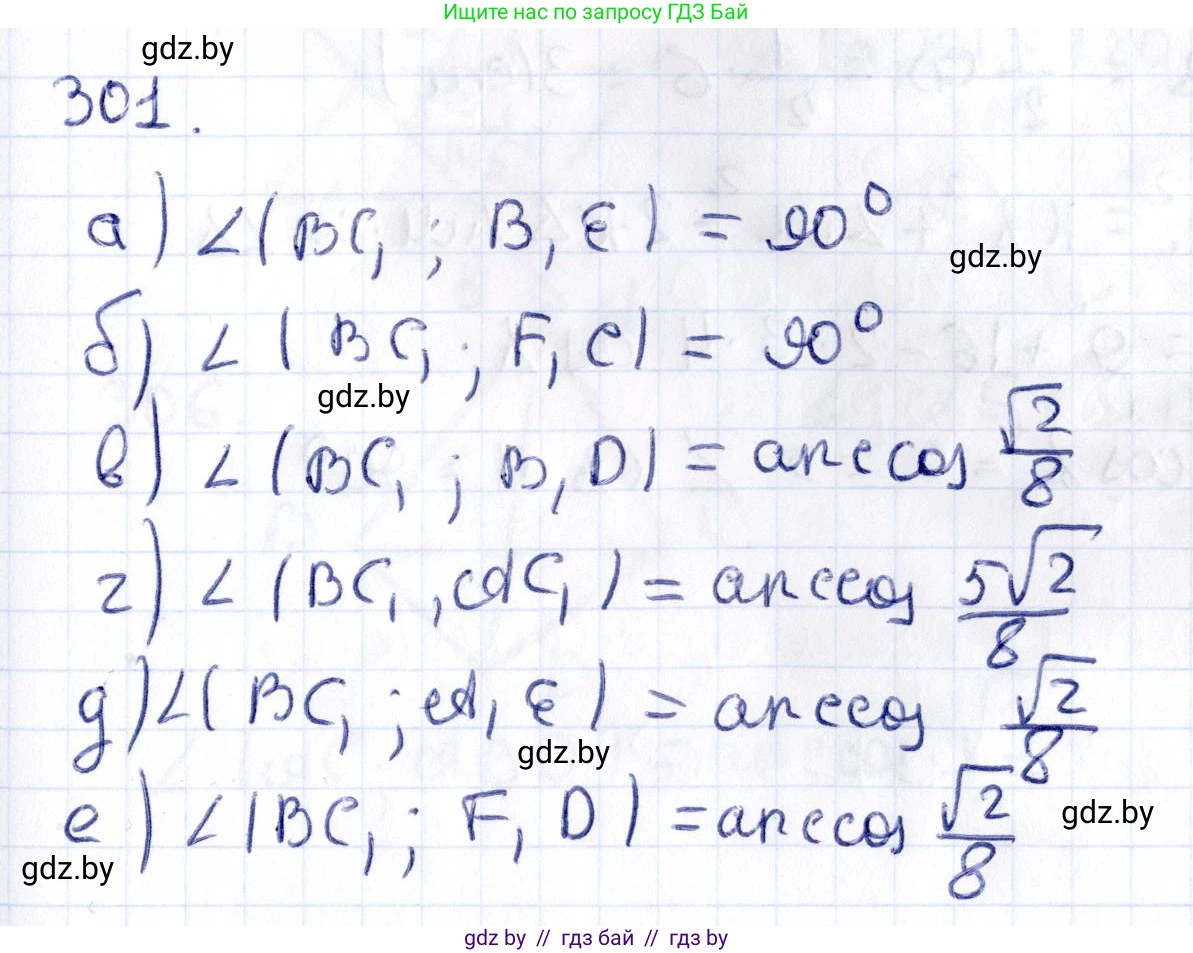 Ищите нас по запросу ГДЗ Бай
gdz.by
301.
а) ∠(BC₁; B₁E) = 90°
gdz.by
б) ∠(BC₁; F₁C) = 90°
gdz.by
в) ∠(BC₁; B₁D) = arccos √2/8
г) ∠(BC₁, AC₁) = arccos 5√2/8
д) ∠(BC₁; A₁E) = arccos √2/8
gdz.by
е) ∠(BC₁; F₁D) = arccos √2/8
gdz.by
gdz.by
gdz by // гдз бай // гдз by